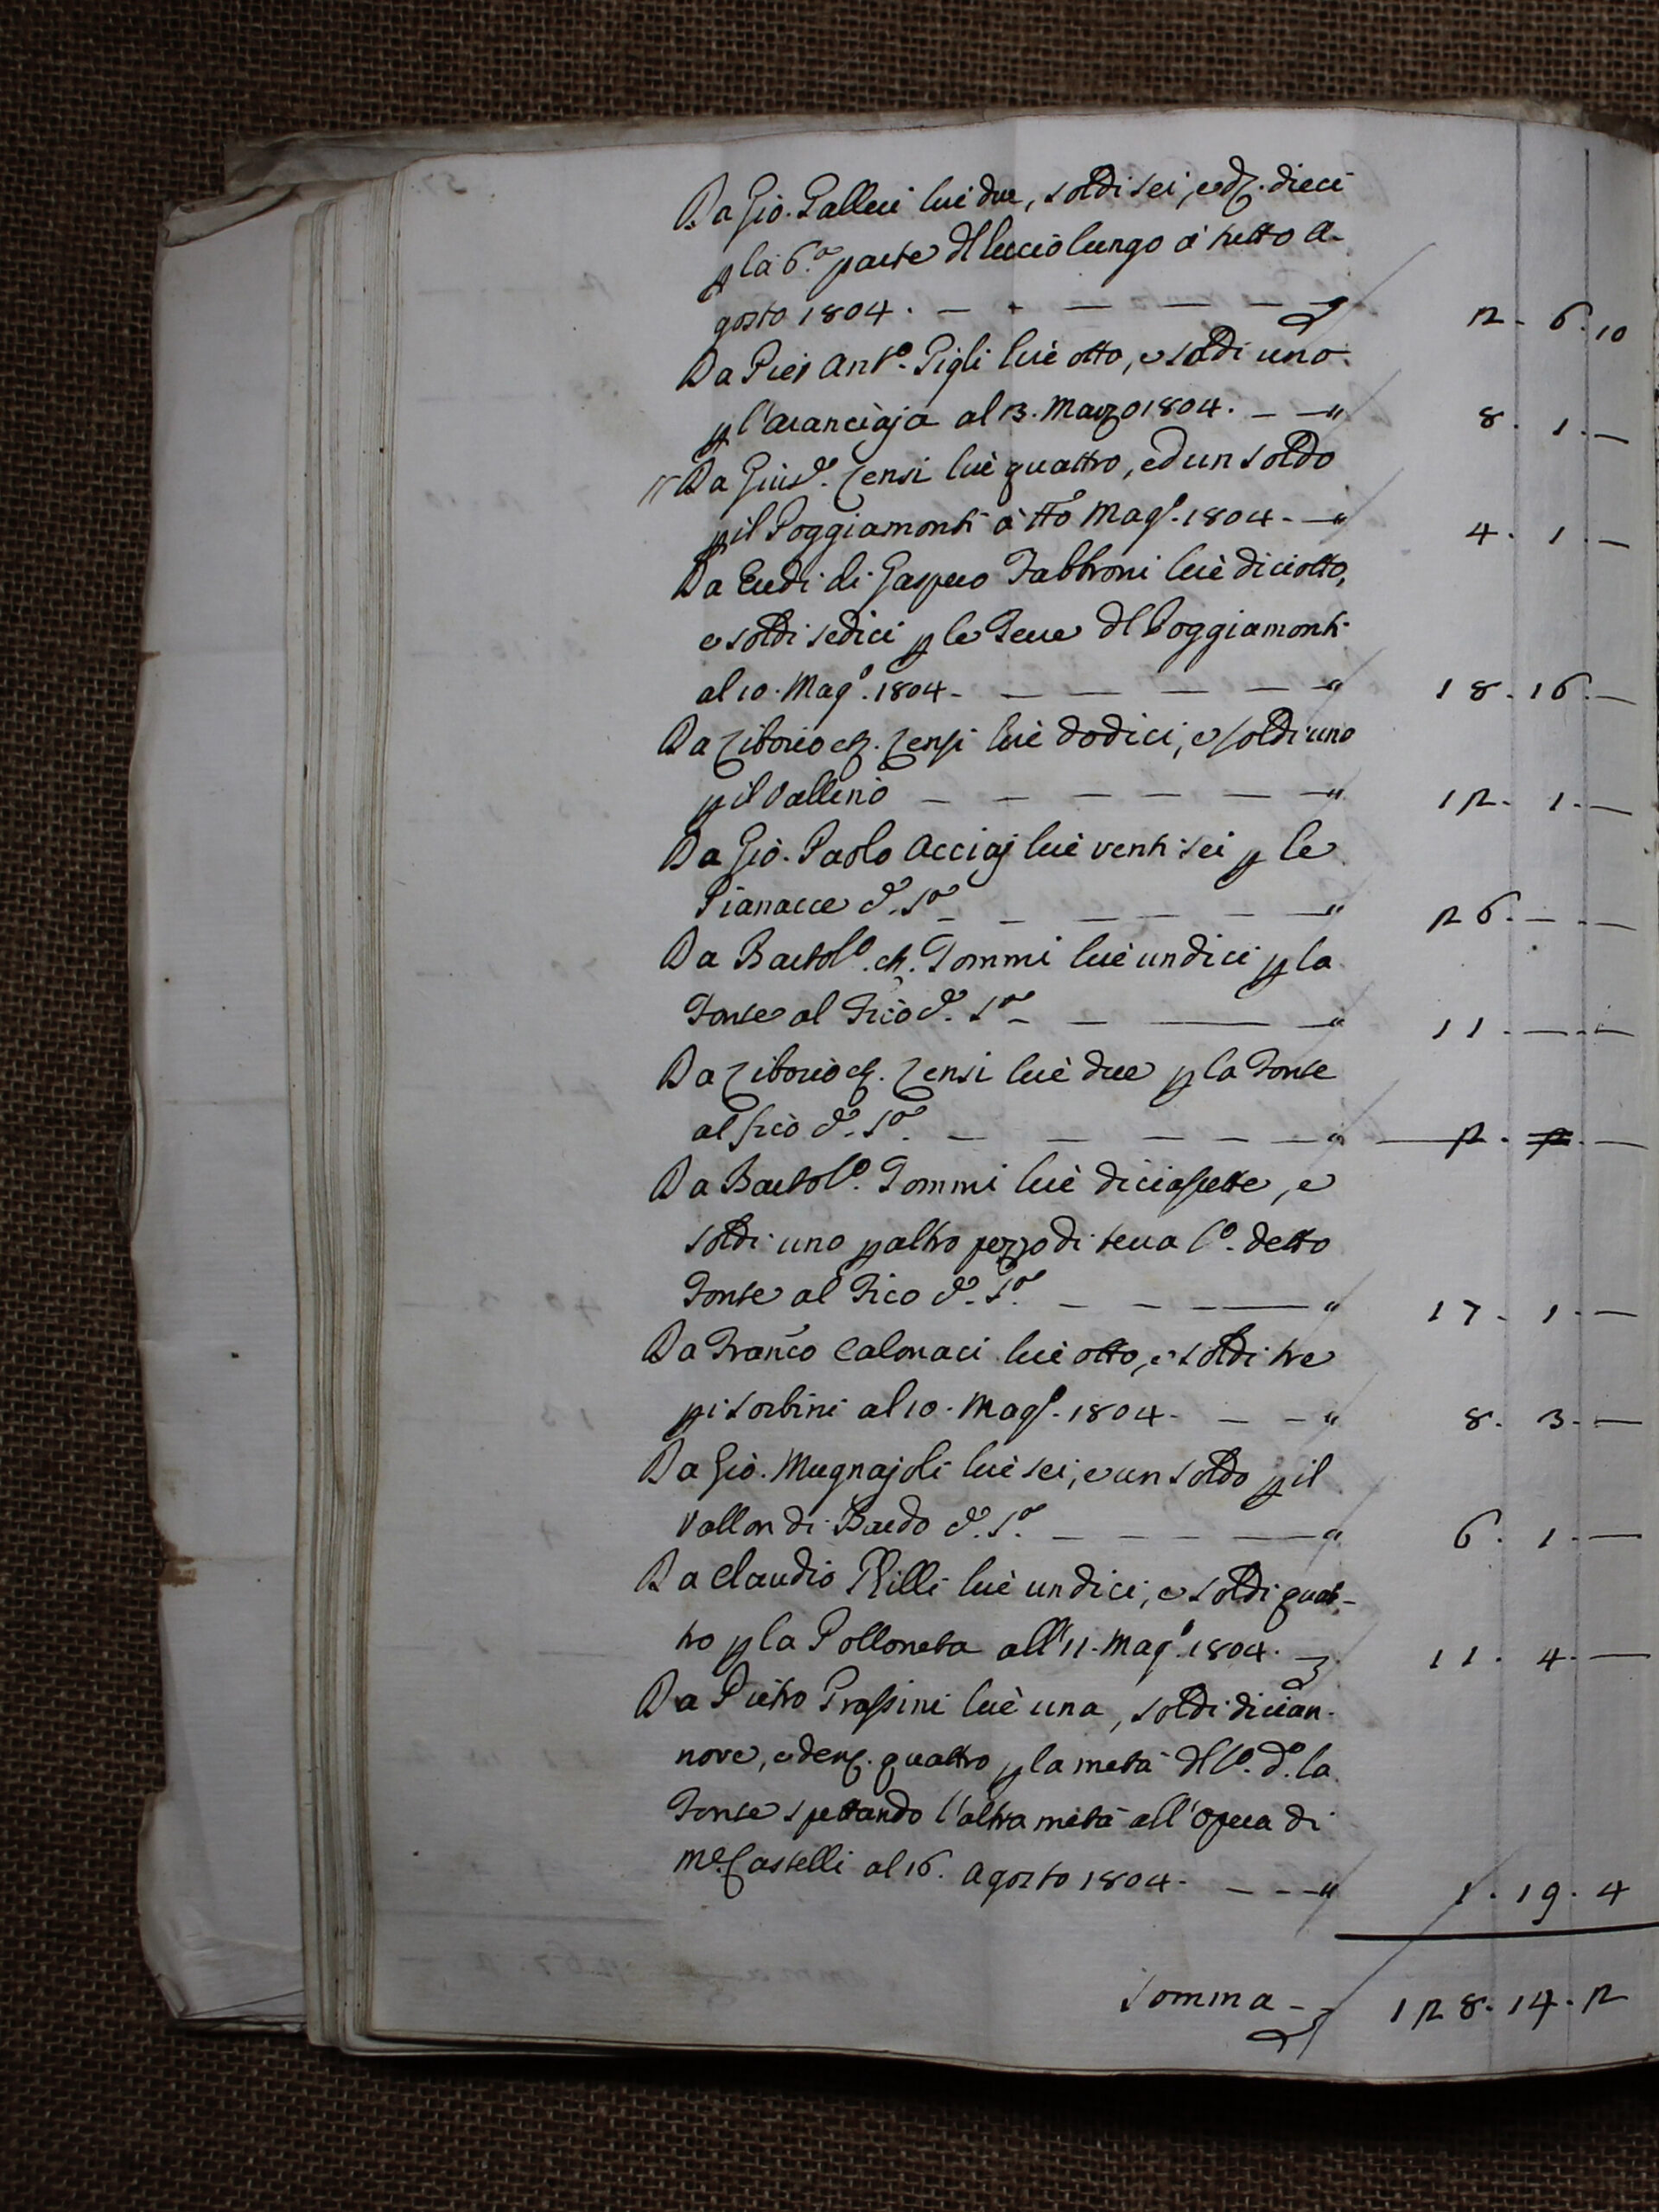 Da Gio. Galleri lire due, soldi sei, e d. dieci
p la 6.a parte dl lucciolungo à tutto A-
gosto 1804. - - - - - - " 2 - 6. 10
Da Pier Ant.o Pigli lire otto, e soldi uno
p l'Aranciaja al 13. Marzo 1804. - - " 8. 1. -
Da Gius.e Censi lire quattro, ed un soldo
p il Poggiamonti à tto Magg.o 1804 - - " 4. 1. -
Da Eredi di Gaspero Fabbroni lire diciotto,
e soldi sedici p le Terre dl Poggiamonti
al 10. Magg.o 1804 - - - - - - " 18. 16. -
Da Liborio Censi lire dodici, e soldi uno
p il Vallino - - - - - - " 12. 1. -
Da Gio. Paolo Acciaj lire venti sei p le
Pianacce d.o S.o - - - - - " 26. - -
Da Bartol.o Tommi lire undici p la
Fonte al Fico d.o S.o - - - " 11. - -
Da Liborio Censi lire due p la Fonte
al Fico d.o S.o - - - - - " 2. -
Da Bartol.o Tommi lire diciassette, e
soldi uno p altro pezzo di terra l.o detto
Fonte al Fico d.o S.o - - - " 17. 1. -
Da Franco Calonaci lire otto, e soldi tre
p i Sorbini al 10. Magg.o 1804 - - - " 8. 3. -
Da Gio. Mugnajoli lire sei, e un soldo p il
Vallon di Bardo d.o S.o - - - - " 6. 1. -
Da Claudio Rilli lire undici, e soldi quat-
tro p la Polloneta all'11. Magg.o 1804. - 11. 4. -
Da Pietro Grassini lire una, soldi dician-
nove, e den. quattro p la metà dl l.o d.o la
Fonte spettando l'altra metà all'Opera di
M.e Castelli al 16. Agosto 1804 - - - " 1. 19. 4
Somma - - 128. 14. 2